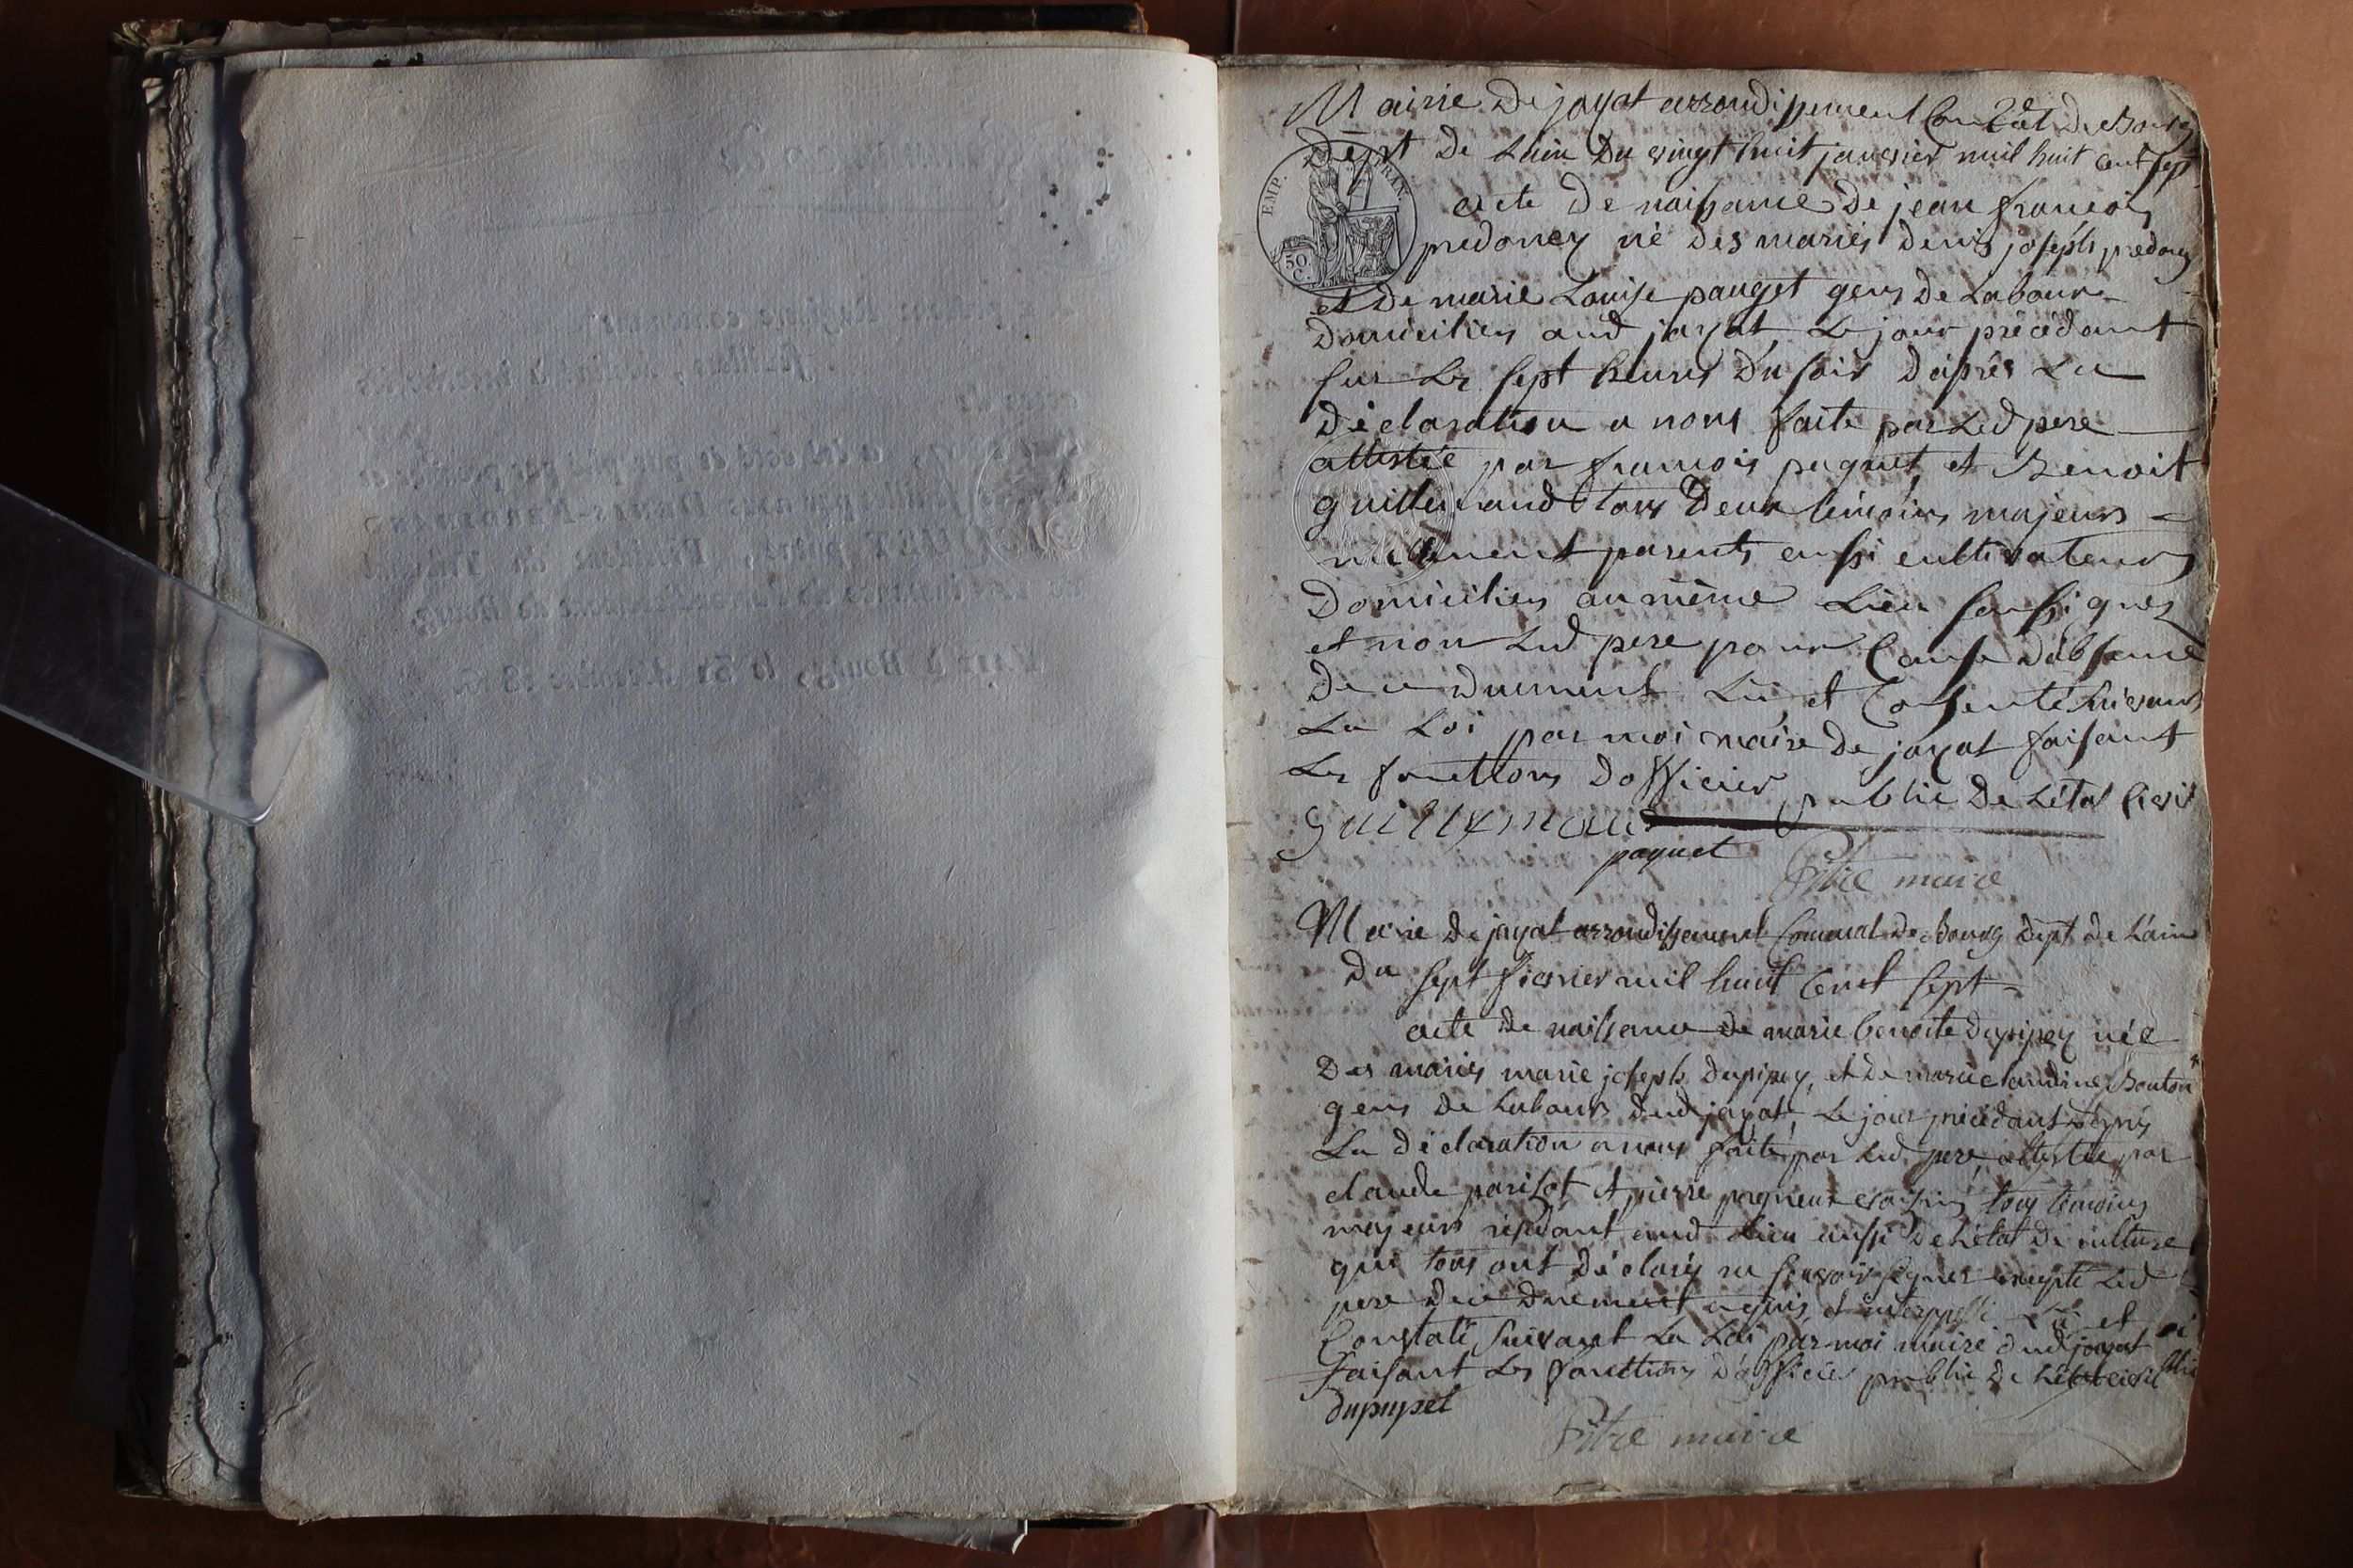 Mairie de jayat arrondissement Com.al de Bourg
Dept de Lain Du vingt huit janvier mil huit cent sept
EMP. FRAN.
50 C.
acte De naissance de jean francois
predoney né des mariés denis joseph predoney
et De marie Louise pauget gens De Labour
Domiciliés aud jayat, Le jour précédant
sur Les sept heures Du soir D'après La
Déclaration a nous faite par Led pere
attestée par francois paquet et Benoit
guillemaud tous Deux témoins majeurs
parents, aussi cultivateurs
Domiciliés au même Lieu soussignés
et non Led pere pour Cause D'absence
De ce Duement Lu et Suivant
La Loi par moi maire De jayat faisant
Les fonctions D'officier public De Létat Civil
guillemaud
paquet
Pitre maire
Mairie De jayat arrondissement Comunal De Bourg dept de Lain
Du sept fievrier mil huit Cent sept
acte De naissance De marie benoite dupupey née
Des mariés marie joseph dupupey, et De marie claudine Bouton
gens De Labours dud jayat, Le jour précédant D'après
La Déclaration a nous faite par Led pere, attestée par
claude parisot et pierre pagneux voisins, tous témoins
majeurs résidant aud Lieu aussi De Létat De culture
qui tous ont Déclarés ne scavoir signer excepté Led
pere De ce Duement requis et interpellé. Lu et
Constaté suivant La Loi par moi maire dud jayat
faisant Les fonctions D'officier public De Létat civil
dupupet
Pitre maire